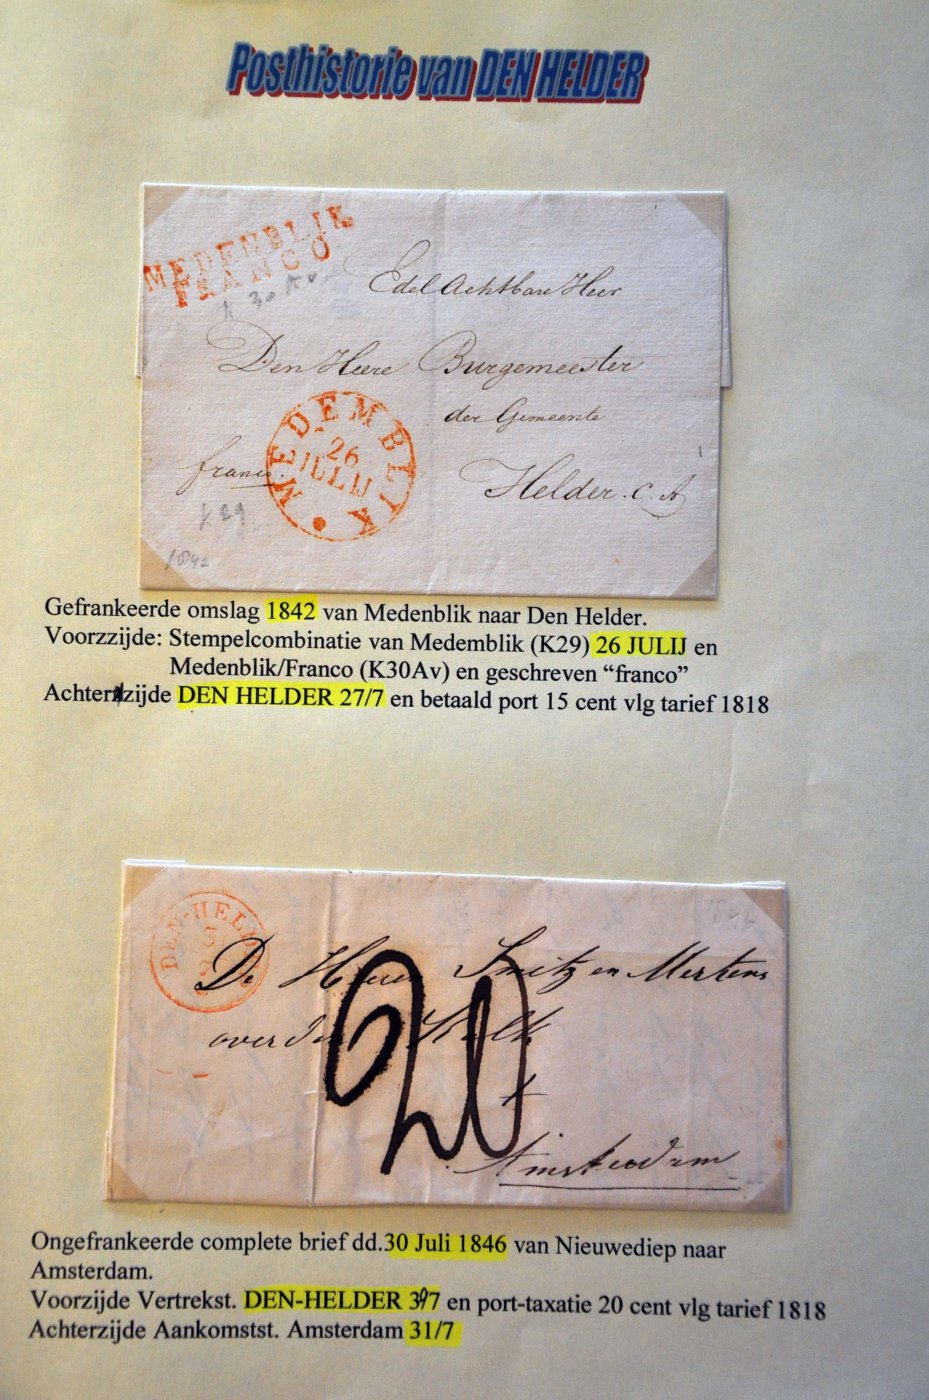 Posthistorie van DEN HELDER
MEDENBLIK
FRANCO
Edel Achtbare Heer
Den Heere Burgemeester
der Gemeente
MEDEMBLIK
26
JULIJ
franco.
Helder. c. A
K29
1842
Gefrankeerde omslag 1842 van Medenblik naar Den Helder.
Voorzzijde: Stempelcombinatie van Medemblik (K29) 26 JULIJ en
Medenblik/Franco (K30Av) en geschreven “franco”
Achterzijde DEN HELDER 27/7 en betaald port 15 cent vlg tarief 1818
DEN-HELD
De Heeren Smitz en Mertens
over de
20
t
Amsterdam
Ongefrankeerde complete brief dd.30 Juli 1846 van Nieuwediep naar
Amsterdam.
Voorzijde Vertrekst. DEN-HELDER 30/7 en port-taxatie 20 cent vlg tarief 1818
Achterzijde Aankomstst. Amsterdam 31/7